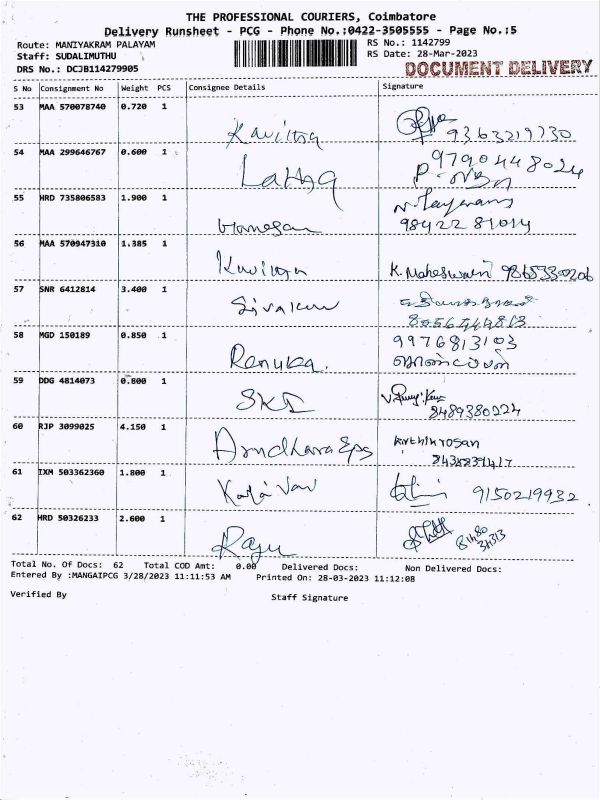 THE PROFESSIONAL COURIERS, Coimbatore
Delivery Runsheet - PCG - Phone No.:0422-3505555 - Page No.:5
Route: MANIYAKRAM PALAYAM
RS No.: 1142799
Staff: SUDALIMUTHU
RS Date: 28-Mar-2023
DRS No.: DCJB114279905
DOCUMENT DELIVERY
S No Consignment No Weight PCS Consignee Details Signature
53 MAA 570078740 0.720 1 Kavitha 9363219730
54 MAA 299646767 0.600 1 Latha 9790448024
55 HRD 735806583 1.900 1
98422 81014
56 MAA 570947310 1.385 1 Kavitha K. Maheswari
57 SNR 6412814 3.400 1 Sivakum
8056544813
58 MGD 150189 0.850 1 Renuka. 9976813103
59 DDG 4814073 0.800 1 SKI
8489380224
60 RJP 3099025 4.150 1
61 IXM 503362360 1.800 1 9150219932
62 HRD 50326233 2.600 1 Raju
Total No. Of Docs: 62 Total COD Amt: 0.00 Delivered Docs: Non Delivered Docs:
Entered By :MANGAIPCG 3/28/2023 11:11:53 AM Printed On: 28-03-2023 11:12:08
Verified By
Staff Signature